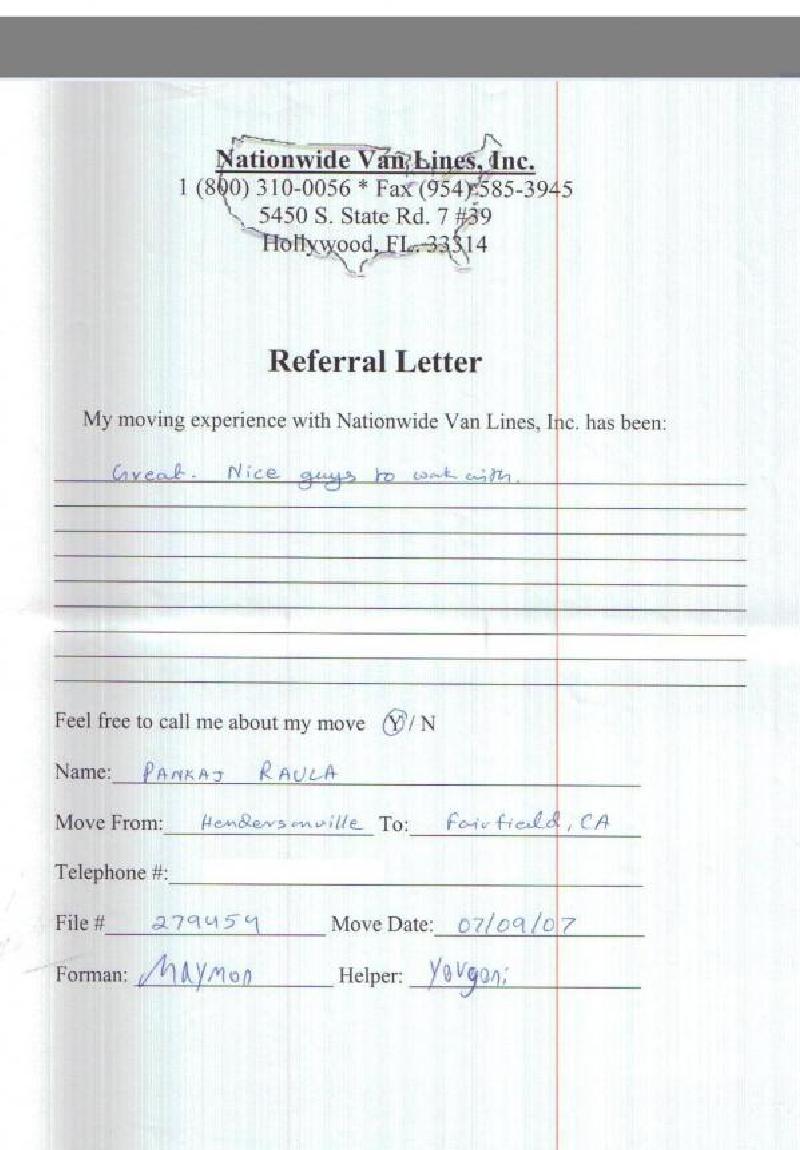 Nationwide Van Lines, Inc.
1 (800) 310-0056 * Fax (954) 585-3945
5450 S. State Rd. 7 #39
Hollywood, FL. 33314
Referral Letter
My moving experience with Nationwide Van Lines, Inc. has been:
Great. Nice guys to work with.
Feel free to call me about my move Y / N
Name: PANKAJ RAULA
Move From: Hendersonville To: Fairfield, CA
Telephone #:
File # 279454 Move Date: 07/09/07
Forman: MAYMON Helper: